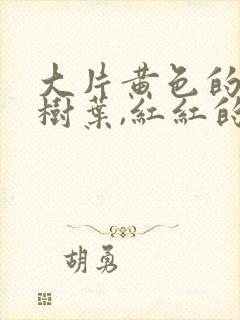 大片黄色的
樹葉,紅紅的
胡勇